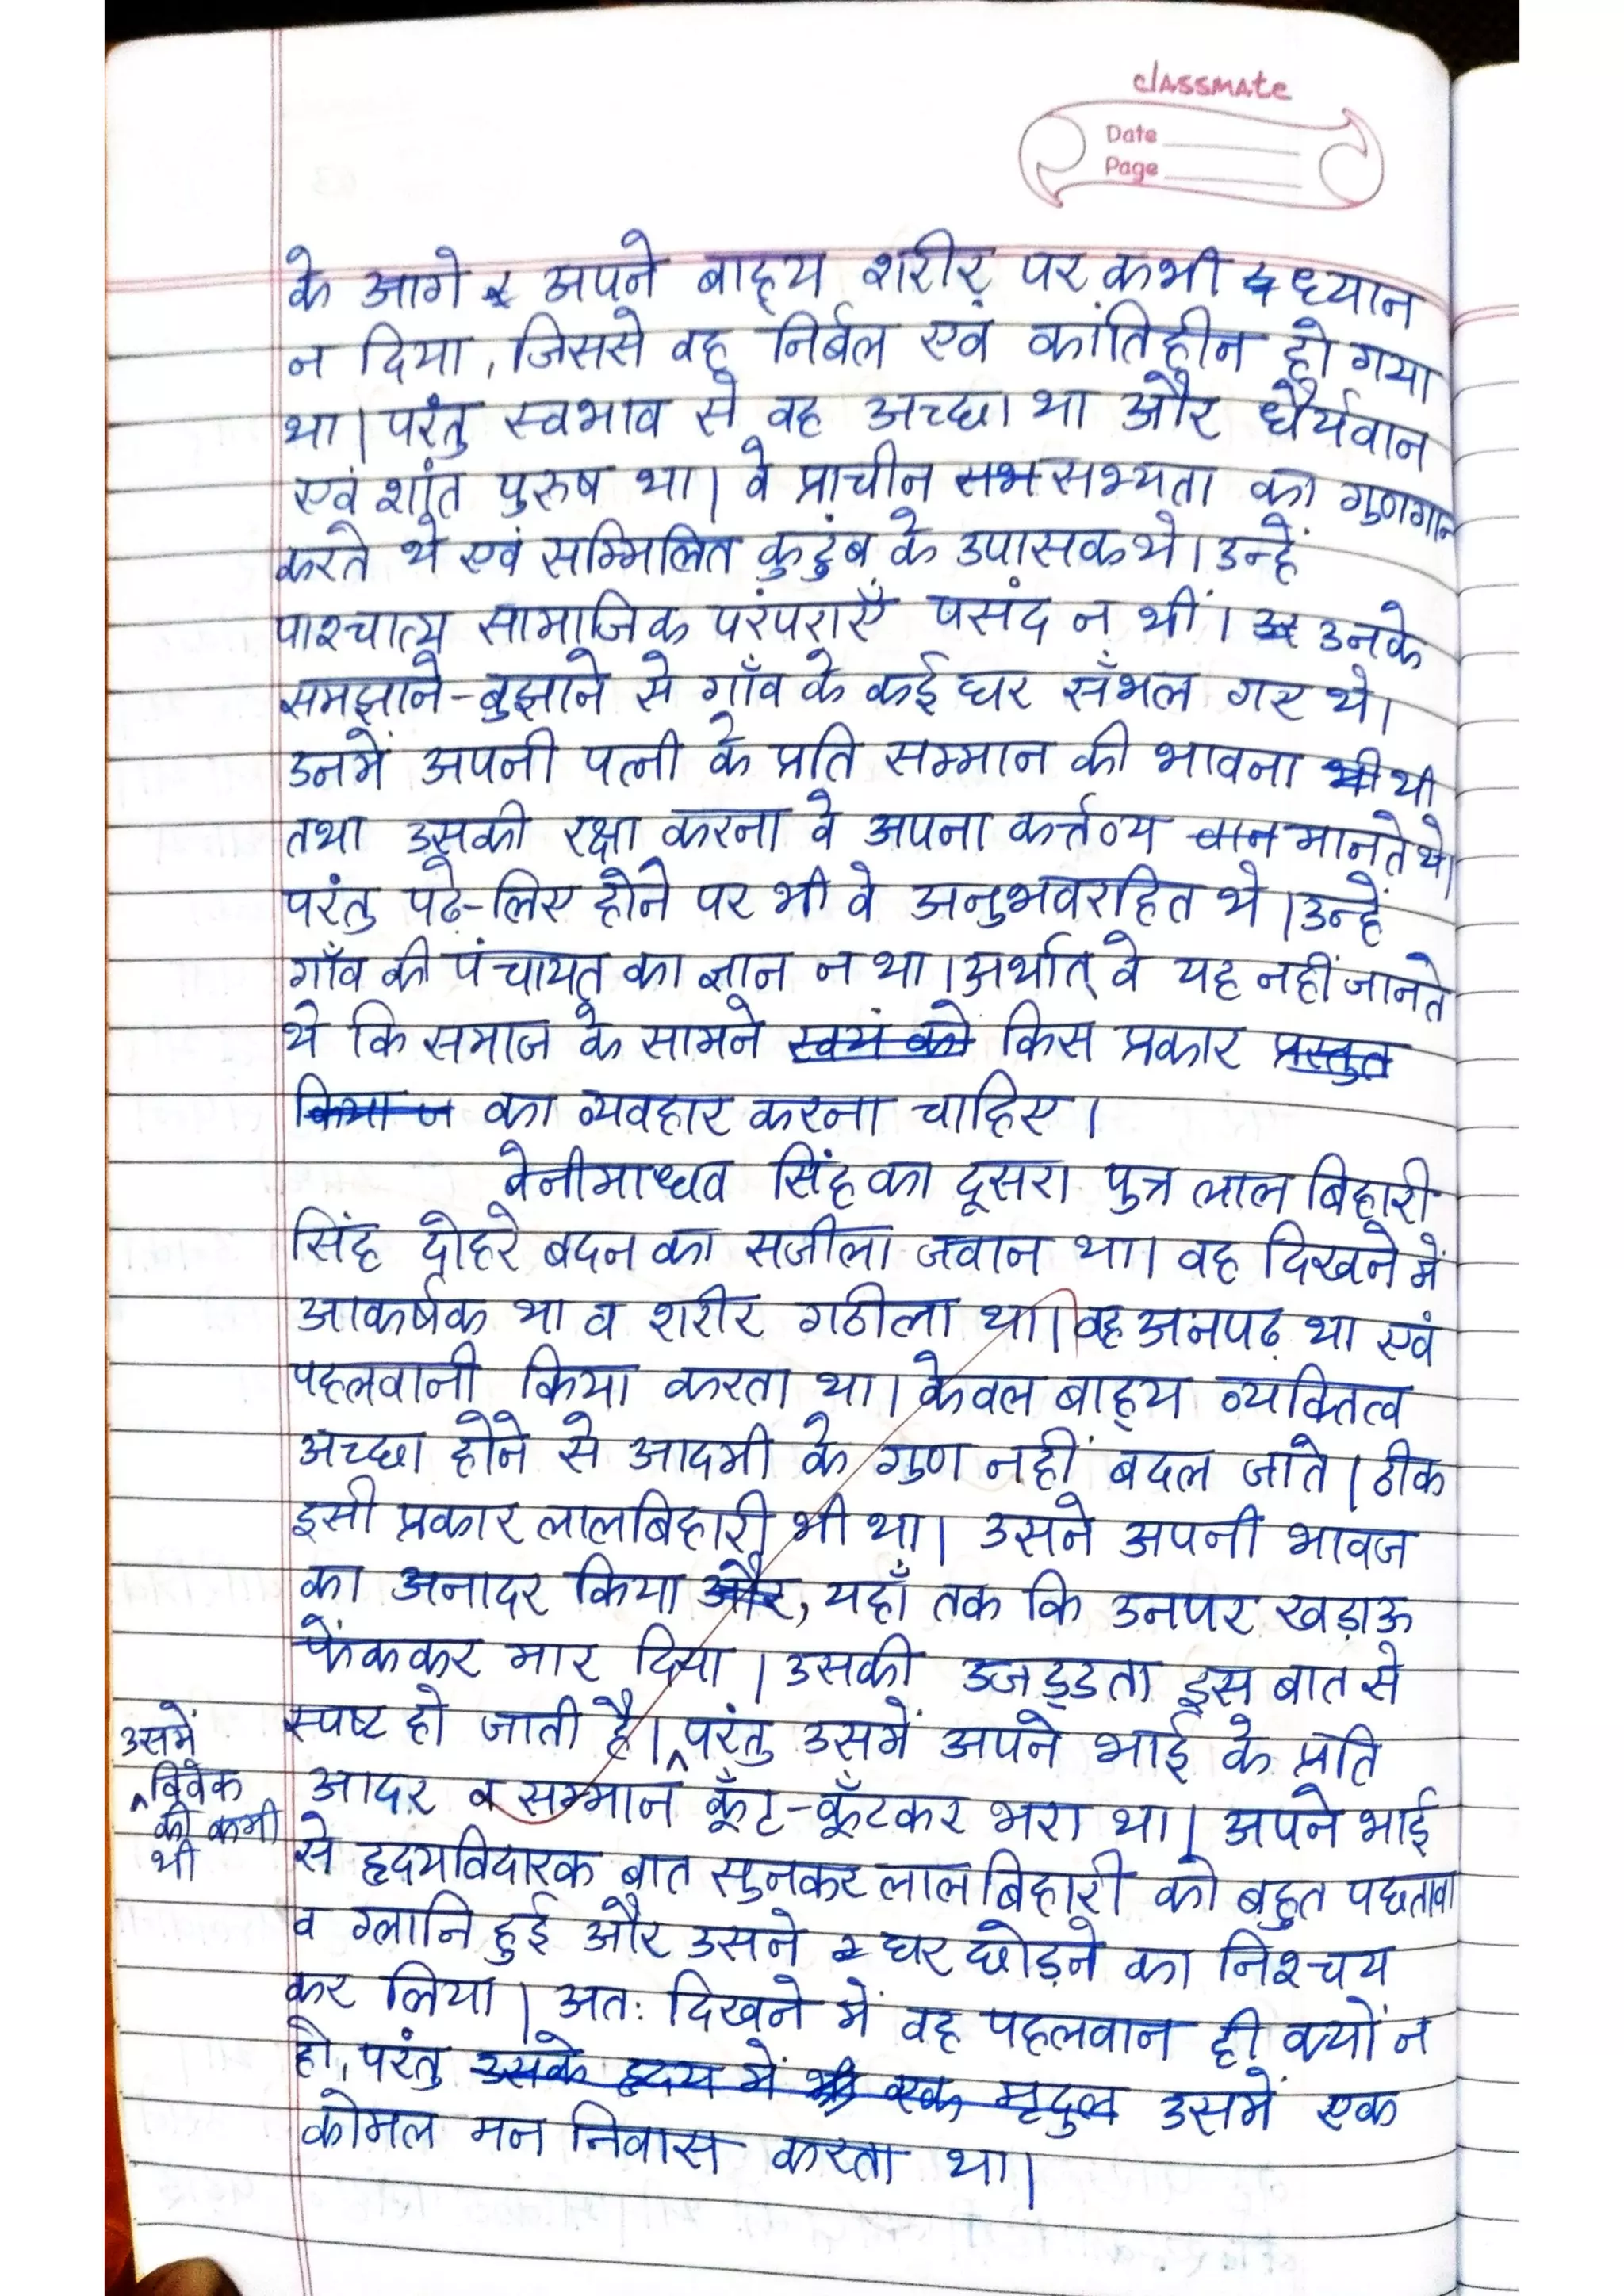 classmate
Date
Page
के आगे अपने बाह्य शरीर पर कभी ध्यान
न दिया, जिससे वह निर्बल एवं कांतिहीन हो गया
था। परंतु स्वभाव से वह अच्छा था और धैर्यवान
एवं शांत पुरुष था। वे प्राचीन सभ सभ्यता का गुणगान
करते थे एवं सम्मिलित कुटुंब के उपासक थे। उन्हें
पाश्चात्य सामाजिक परंपराएँ पसंद न थीं। उनके
समझाने-बुझाने से गाँव के कई घर सँभल गए थे।
उनमें अपनी पत्नी के प्रति सम्मान की भावना भी थी
तथा उसकी रक्षा करना वे अपना कर्त्तव्य मानते थे।
परंतु पढ़े-लिए होने पर भी वे अनुभवरहित थे। उन्हें
गाँव की पंचायत का ज्ञान न था। अर्थात् वे यह नहीं जानते
थे कि समाज के सामने स्वयं को किस प्रकार प्रस्तुत
किया ज का व्यवहार करना चाहिए।
बेनीमाधव सिंह का दूसरा पुत्र लाल बिहारी
सिंह दोहरे बदन का सजीला जवान था। वह दिखने में
आकर्षक था व शरीर गठीला था। वह अनपढ़ था एवं
पहलवानी किया करता था। केवल बाह्य व्यक्तित्व
अच्छा होने से आदमी के गुण नहीं बदल जाते। ठीक
इसी प्रकार लालबिहारी भी था। उसने अपनी भावज
का अनादर किया और, यहाँ तक कि उनपर खड़ाऊ
फेंककर मार दिया। उसकी उजड्डता इस बात से
स्पष्ट हो जाती है। ^ परंतु उसमें अपने भाई के प्रति
उसमें
^ विवेक
की कमी
थी
आदर व सम्मान कूँट-कूँटकर भरा था। अपने भाई
से हृदयविदारक बात सुनकर लाल बिहारी को बहुत पछतावा
व ग्लानि हुई और उसने घर छोड़ने का निश्चय
कर लिया। अतः दिखने में वह पहलवान ही क्यों न
हो, परंतु उसके हृदय में भी एक मृदुल उसमें एक
कोमल मन निवास करता था।